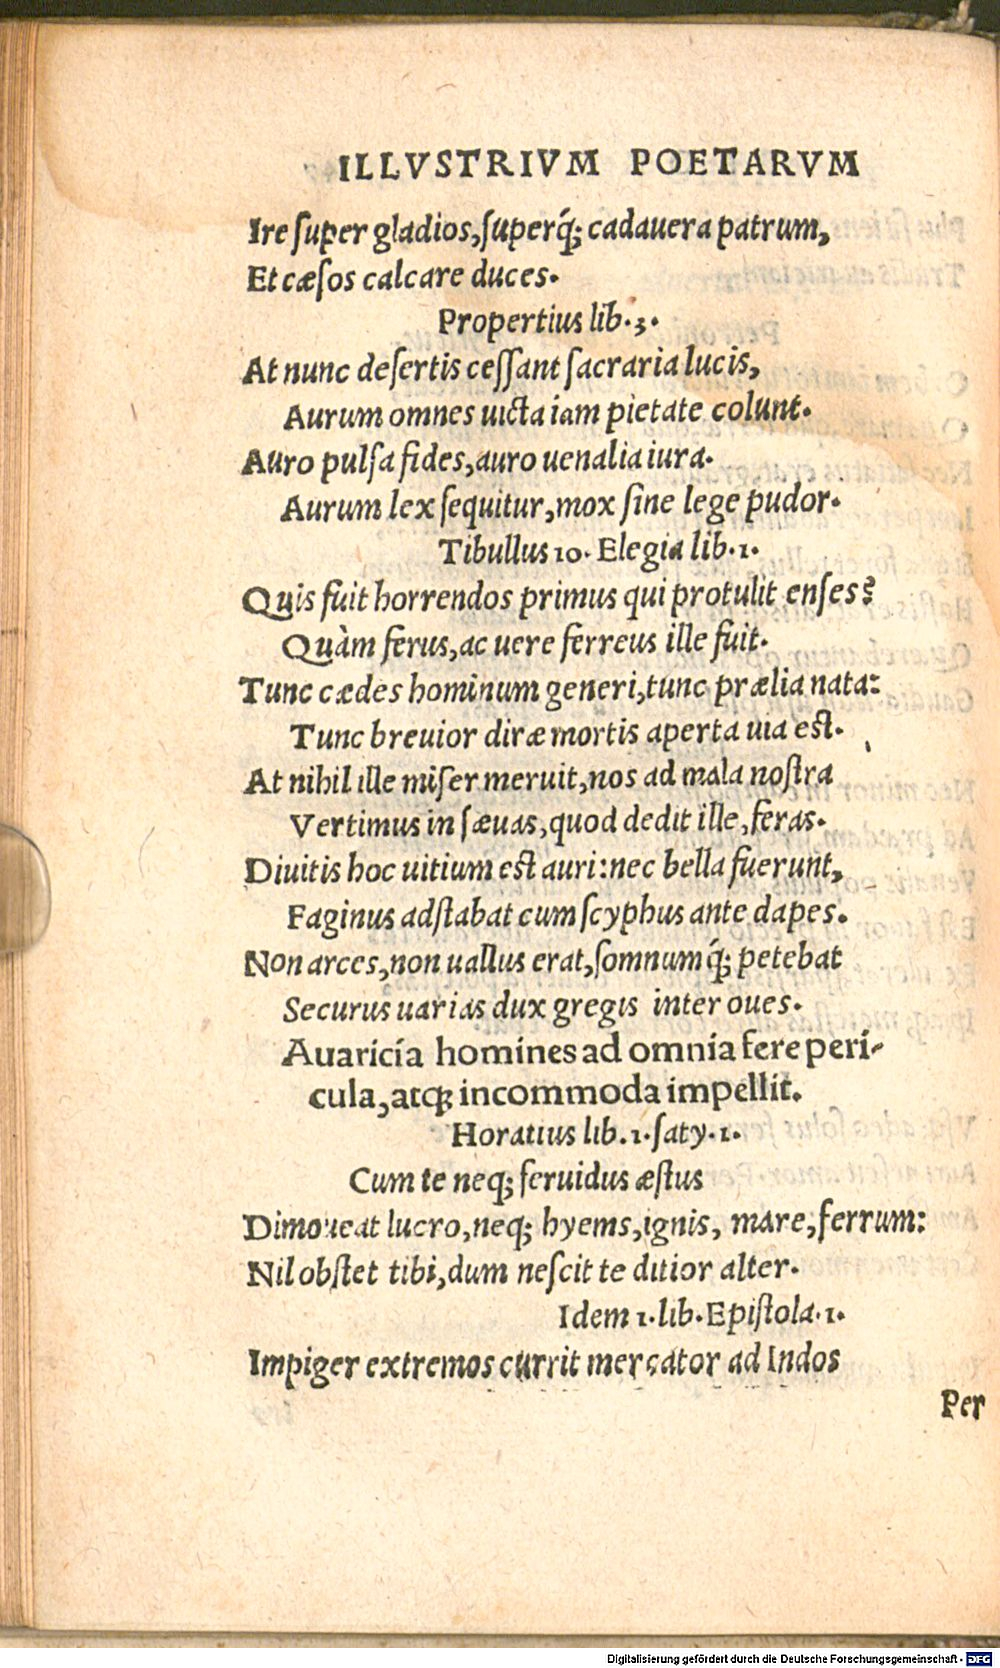 ILLVSTRIVM POETARVM
Ire super gladios, superq́; cadauera patrum,
Et cæsos calcare duces.
Propertius lib. 3.
At nunc desertis cessant sacraria lucis,
Aurum omnes uicta iam pietate colunt.
Auro pulsa fides, auro uenalia iura.
Aurum lex sequitur, mox sine lege pudor.
Tibullus 10. Elegia lib. 1.
Quis fuit horrendos primus qui protulit enses?
Quàm ferus, ac uere ferreus ille fuit.
Tunc cædes hominum generi, tunc prælia nata:
Tunc breuior diræ mortis aperta uia est.
At nihil ille miser meruit, nos ad mala nostra
Vertimus in sæuas, quod dedit ille, feras.
Diuitis hoc uitium est auri: nec bella fuerunt,
Faginus adstabat cum scyphus ante dapes.
Non arces, non uallus erat, somnumq́; petebat
Securus uarias dux gregis inter oues.
Auaricía homines ad omnia fere perí-
cula, atq; incommoda impellit.
Horatius lib. 1. saty. 1.
Cum te neq; feruidus æstus
Dimoueat lucro, neq; hyems, ignis, mare, ferrum:
Nil obstet tibi, dum nescit te ditior alter.
Idem 1. lib. Epistola. 1.
Impiger extremos currit mercator ad Indos
Per
Digitalisierung gefördert durch die Deutsche Forschungsgemeinschaft - DFG